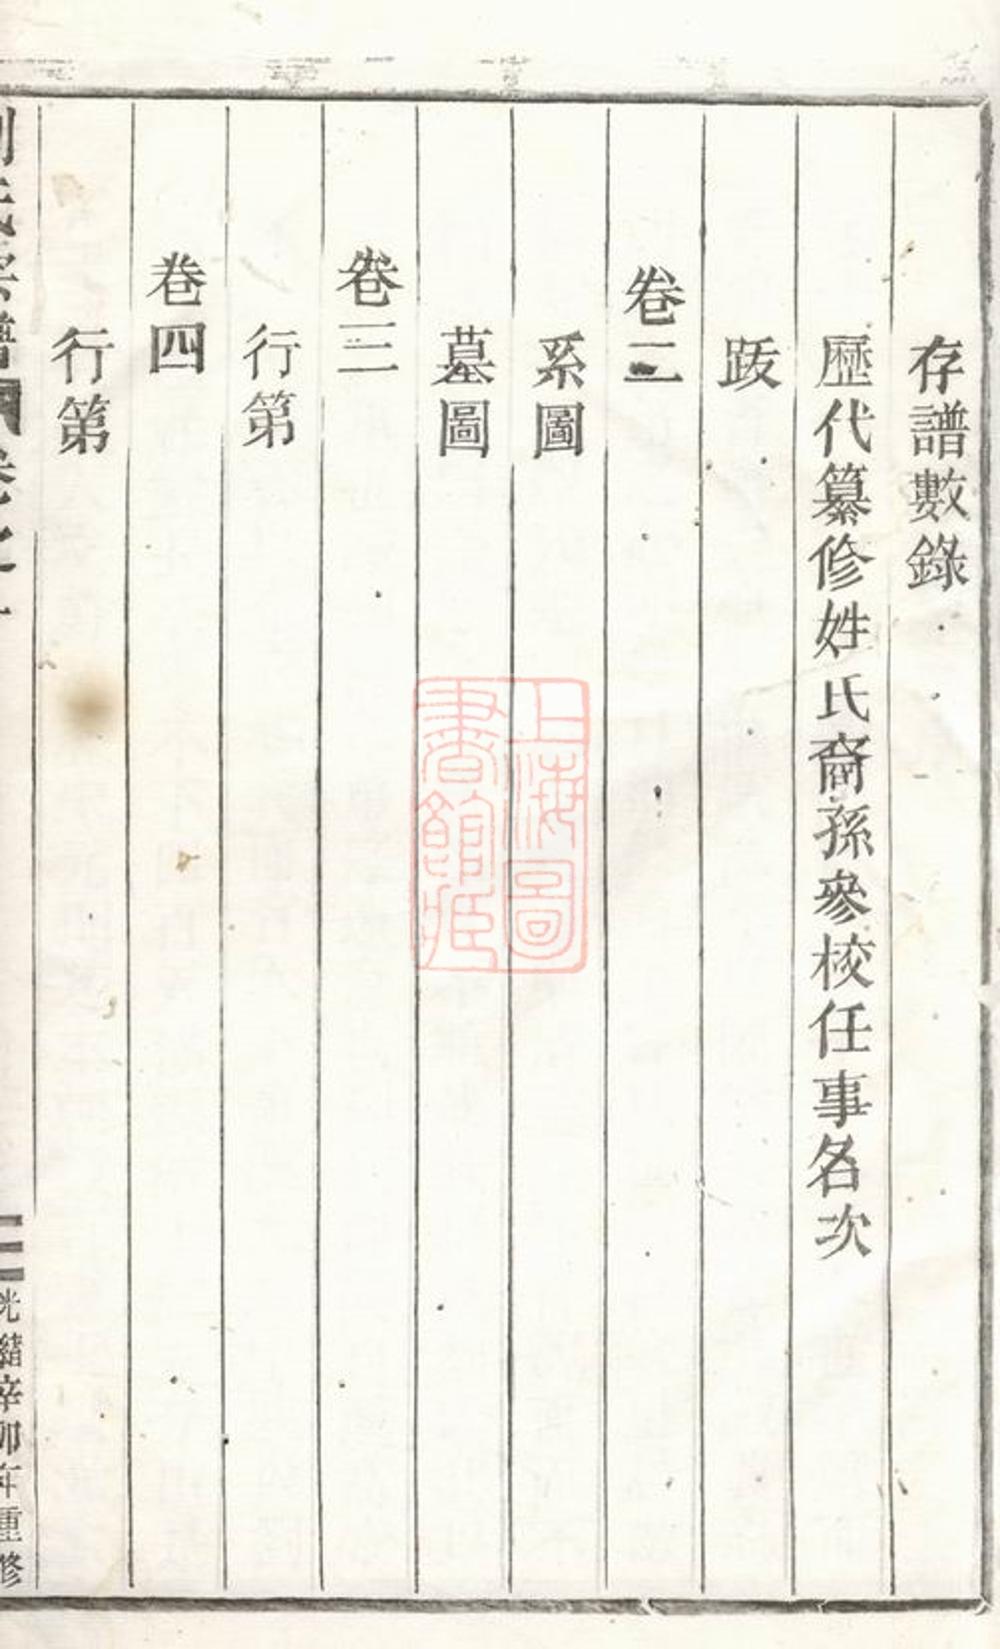 存譜數錄
歷代纂修姓氏裔孫參校任事名次
跋
卷二
系圖
墓圖
卷三
行第
卷四
行第
劉氏宗譜 卷之一
二
光緒辛卯年重修
上海圖書館藏